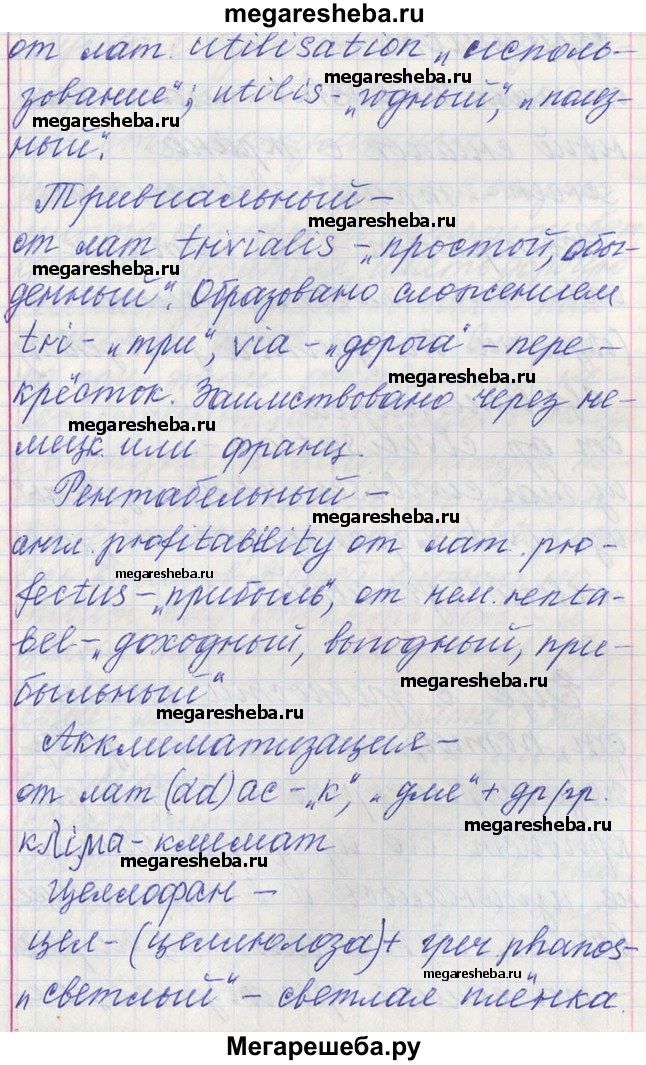 megaresheba.ru
от лат. utilisation „исполь-
megaresheba.ru
зование“; utilis - „годный“, „полез-
megaresheba.ru
ный“.
Тривиальный -
megaresheba.ru
от лат trivialis - „простой, обы-
megaresheba.ru
денный“. Образовано сложением
tri - „три“, via - „дорога“ - пере-
megaresheba.ru
крёсток. Заимствовано через не-
мецк. или франц.
megaresheba.ru
Рентабельный -
megaresheba.ru
англ. profitability от лат. pro-
megaresheba.ru
fectus - „прибыль“, от нем. renta-
bel - „доходный, выгодный, при-
megaresheba.ru
быльный“
megaresheba.ru
Акклиматизация -
от лат (ad) ac - „к“, „для“ + др/гр.
megaresheba.ru
κλίμα - климат
megaresheba.ru
Целлофан -
цел - (целлюлоза) + греч phanos -
megaresheba.ru
„светлый“ - светлая плёнка.
Мегарешеба.ру